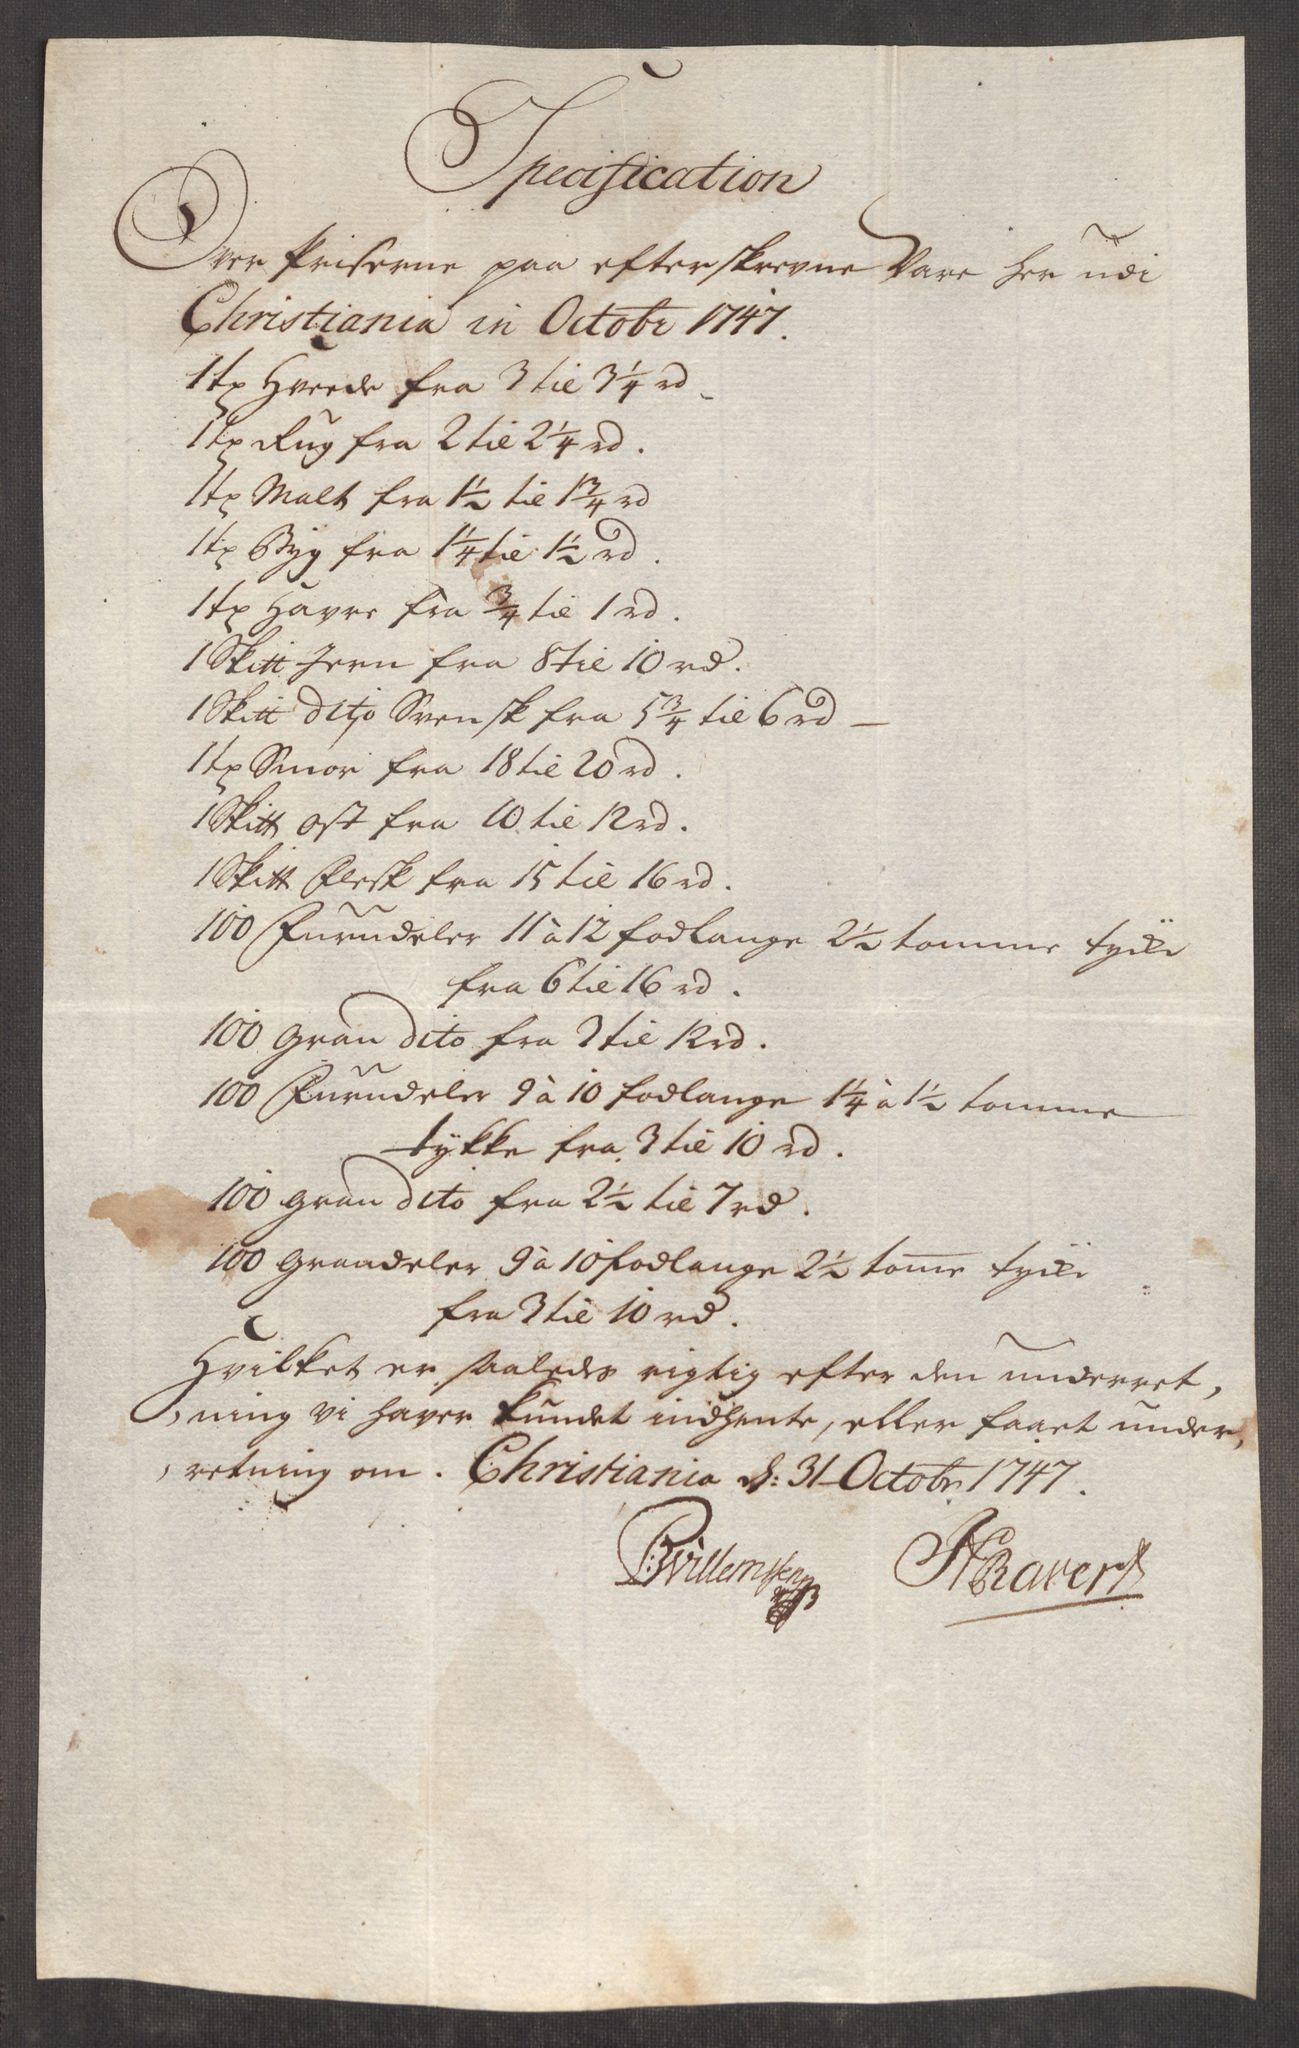 Specification
Over Priserne paa efterskrevne Vare her udi
Christiania in Octobr 1747.
1 tø Hvede fra 3 til 3 1/4 rd
1 tø Rug fra 2 til 2 1/4 rd.
1 tø Malt fra 1 1/2 til 1 3/4 rd
1 tø Byg fra 1 1/4 til 1 1/2 rd.
1 tø Havre fra 3/4 til 1 rd.
1 Skitt Jern fra 8 til 10 rd.
1 Skitt dito Svensk fra 5 3/4 til 6 rd —
1 tø Smør fra 18 til 20 rd.
1 Skitt ost fra 10 til 12 rd.
1 Skitt Flesk fra 15 til 16 rd.
100 Furudeler 11 à 12 fodlange 2 1/2 tomme tycke
fra 6 til 16 rd.
100 gran dito fra 3 til 12 rd.
100 Furudeler 9 à 10 fodlange 1 1/4 à 1 1/2 tomme
tykke fra 3 til 10 rd.
100 gran dito fra 2 1/2 til 7 rd.
100 Grandeler 9 à 10 fodlange 2 1/2 tome tycke
fra 3 til 10 rd.
Hvilket er saaledes rigtig efter den underret,
,ning vi haver kundet indhente, eller faaet under,
,retning om. Christiania d: 31 Octobr 1747.
Willemssen HRavert